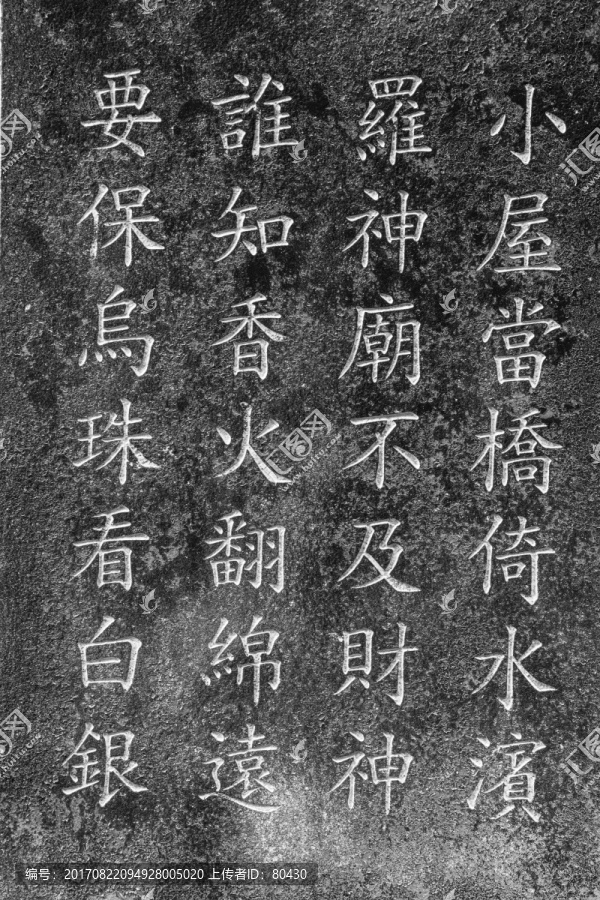 小屋當橋倚水濱
羅神廟不及財神
誰知香火翻綿遠
要保烏珠看白銀
编号：20170822094928005020 上传者ID：80430